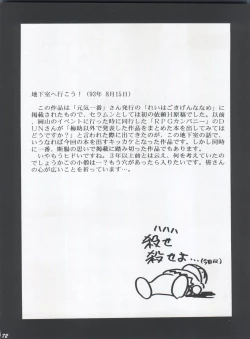 地下室へ行こう！（93年 8月15日）
この作品は「元気一番」さん発行の「れいはごきげんななめ」に
掲載されたもので、セラムンとしては初の依頼原稿でした。以前
岡山のイベントに行った時に同行した「RPGカンパニー」のD
UNさんが「梅助以外で発表した作品をまとめた本を出してみては
どうですか？」と言われた際に出てきたのが、地下室の話で、い
うなれば今回の本を出すキッカケとなった作品です。しかし同時
に一番、断腸の思いで掲載に踏み切った作品でもあります。
いやもうヒドいですね。3年以上前とは云え、何を考えていたの
でしょうかこの小僧は…？もう穴があったら入りたいです。皆さん
の心が広いことを祈っています…。
ハハハ
殺せ
殺せよ…
72